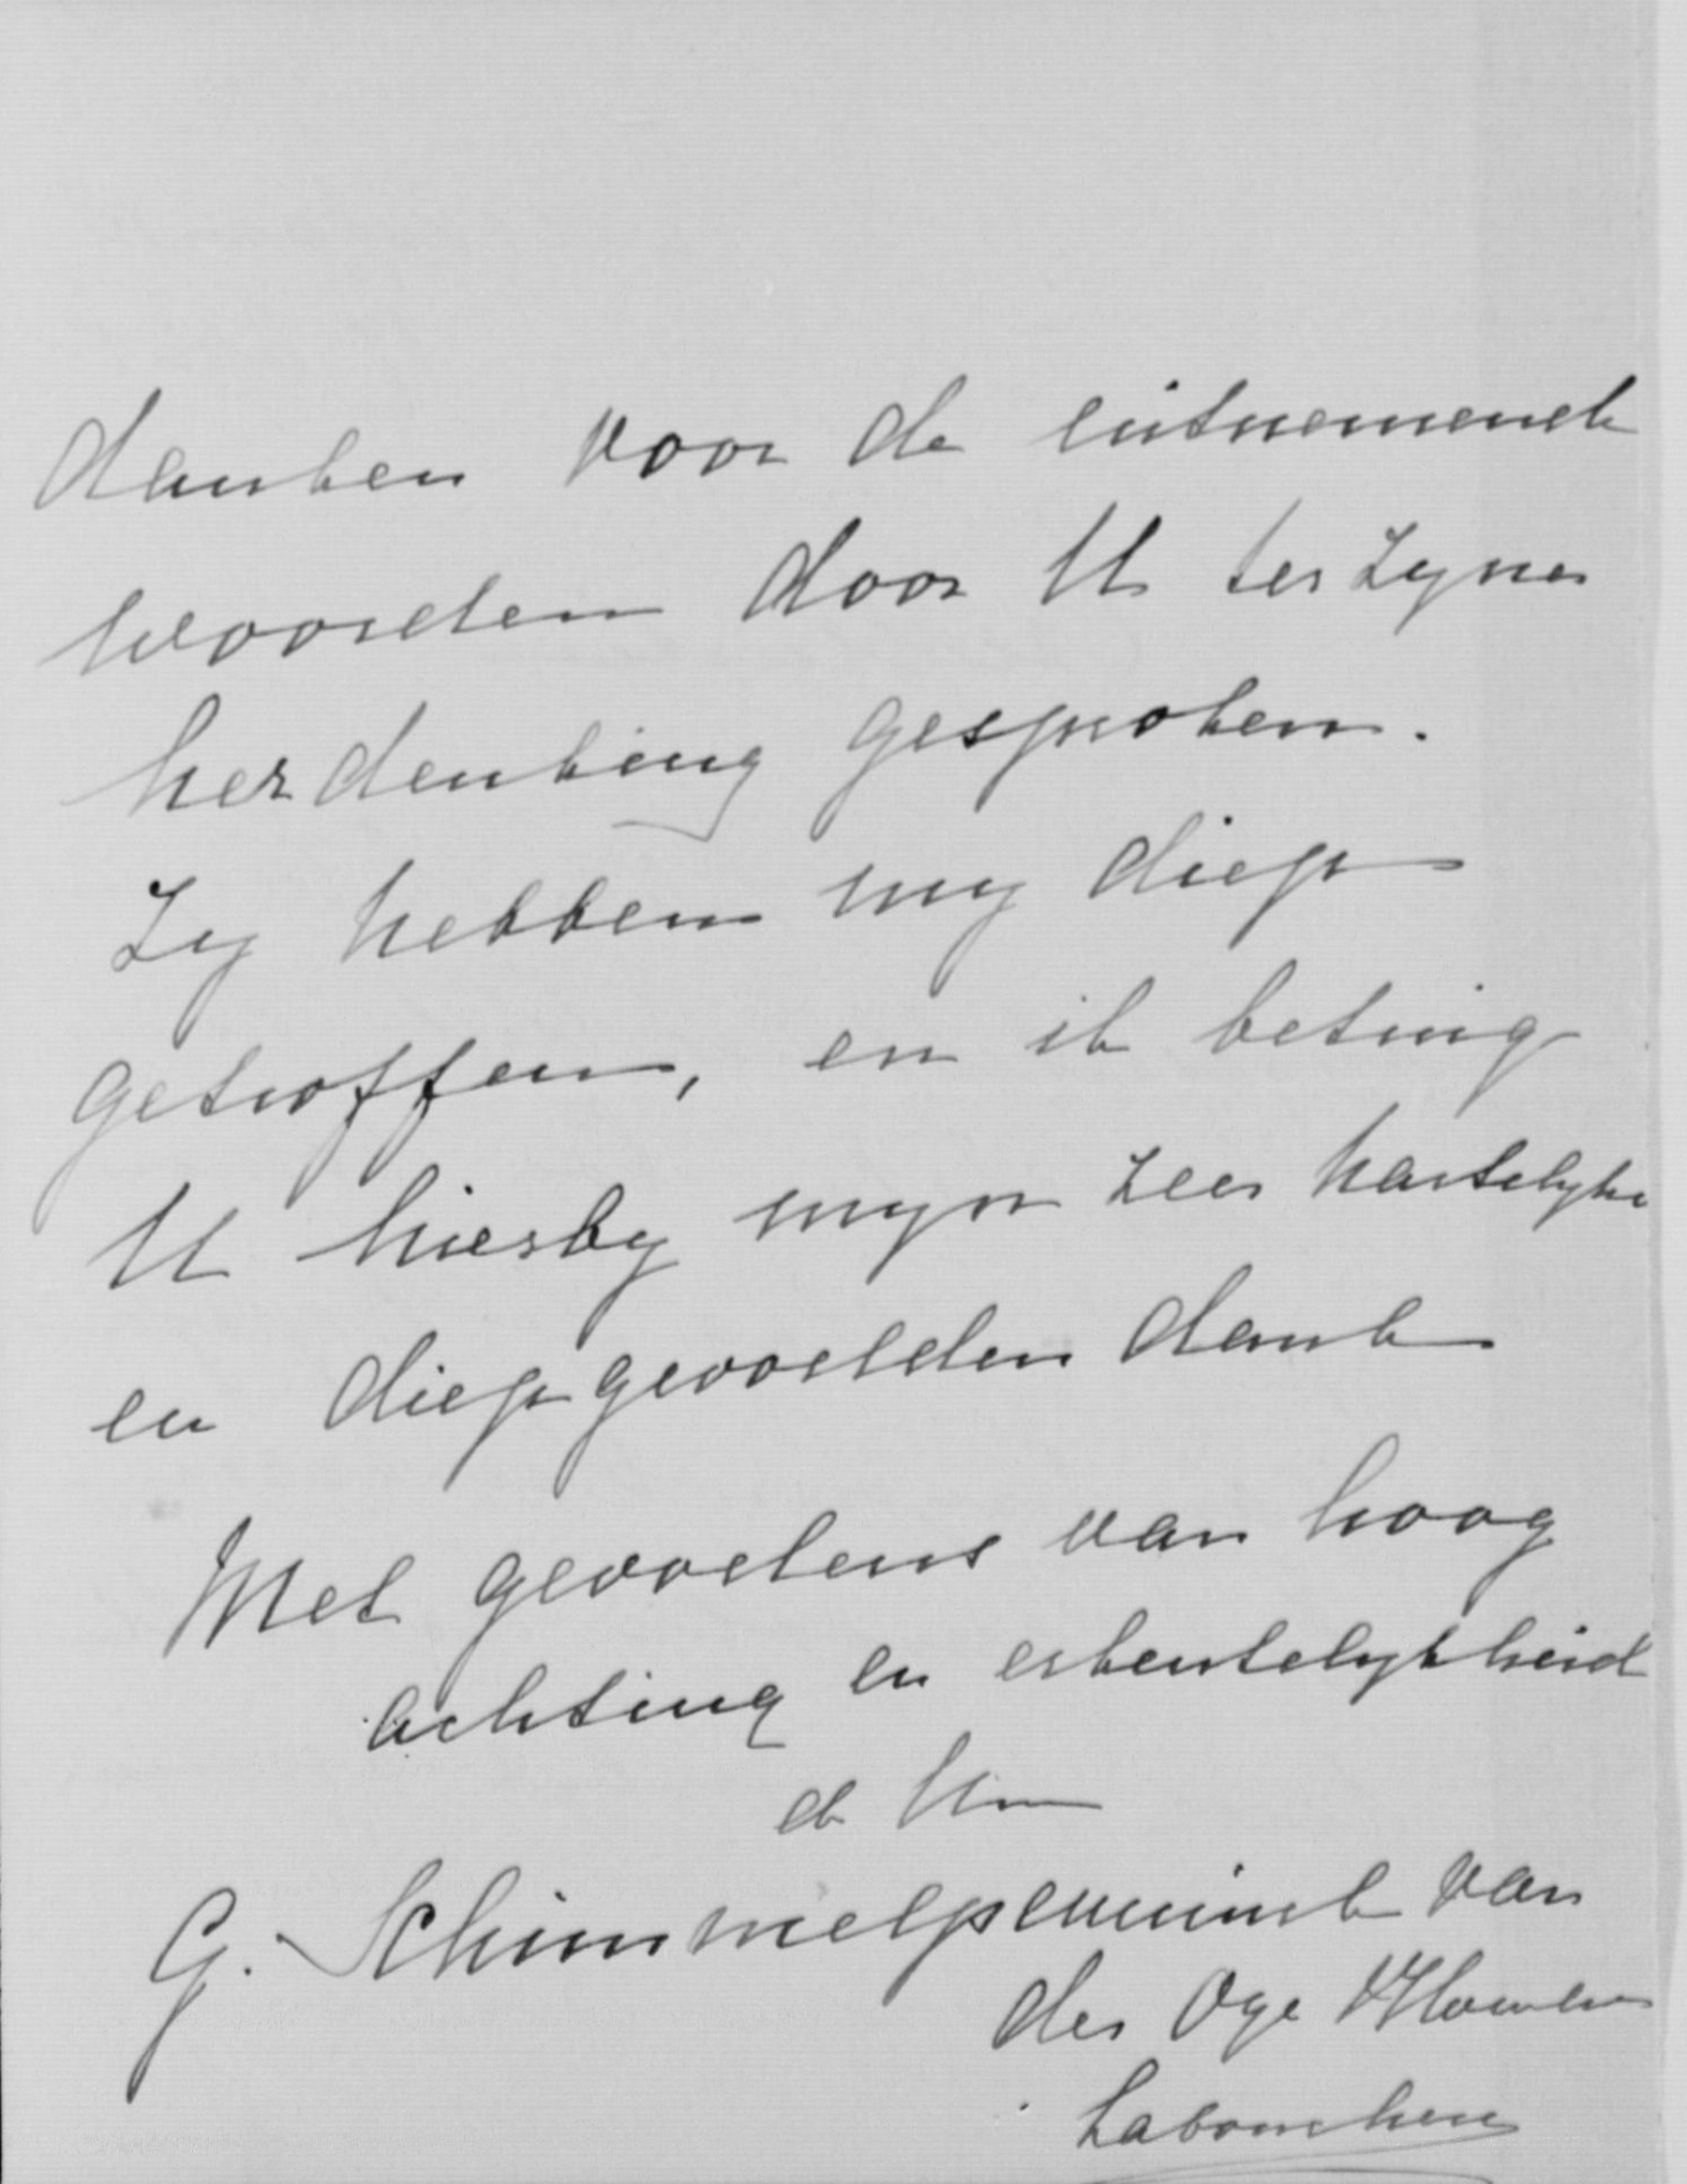 danken voor de uitnemende
woorden door U ter Zyner
herdenking gesproken.
Zy hebben my diep
getroffen, en ik betuig
U hierby myn zeer hartelyke
en diepgevoelden dank
Met gevoelens van hoog
achting en erkentelykheid
de Uw
G. Schimmelpenninck van
der Oye
Labouchere